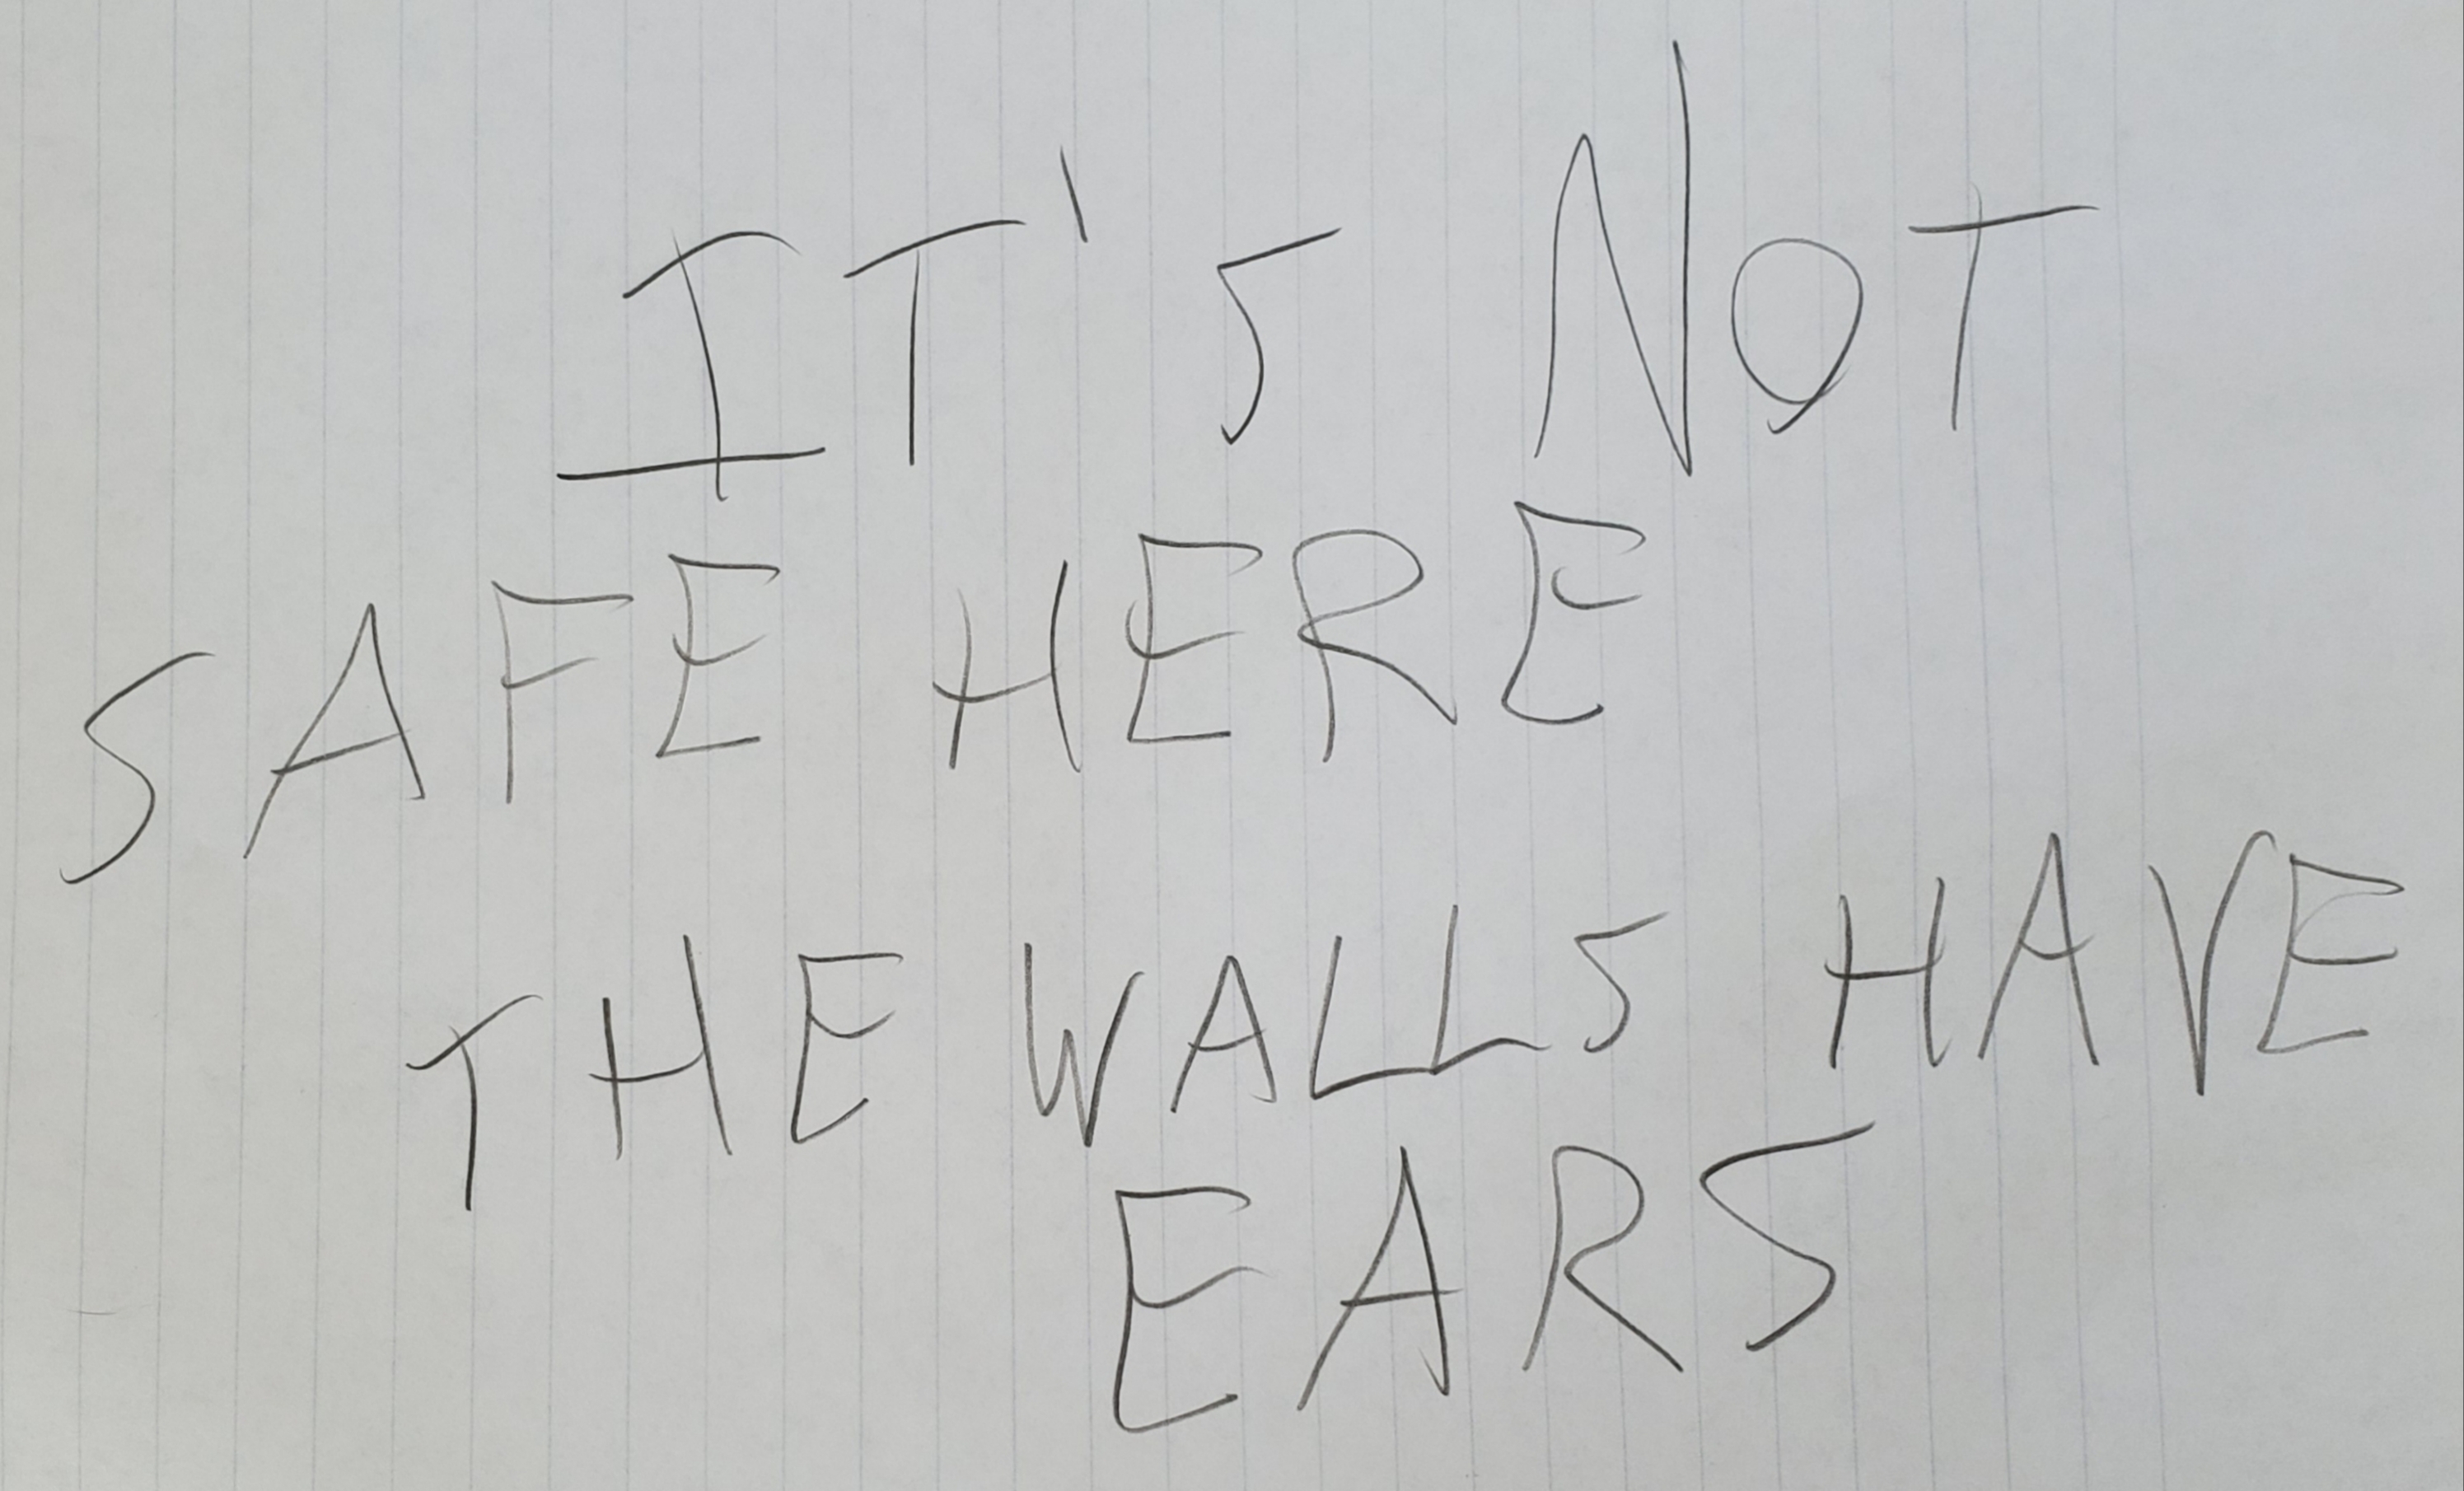 IT'S NOT
SAFE HERE
THE WALLS HAVE
EARS